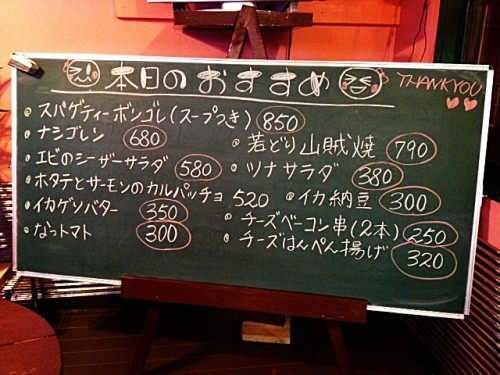 本日のおすすめ
THANKYOU
スパゲティーボンゴレ(スープつき) 850
ナシゴレン 680
エビのシーザーサラダ 580
ホタテとサーモンのカルパッチョ 520
イカゲソバター 350
なっトマト 300
若どり山賊焼 790
ツナサラダ 380
イカ納豆 300
チーズベーコン串(2本) 250
チーズはんぺん揚げ 320